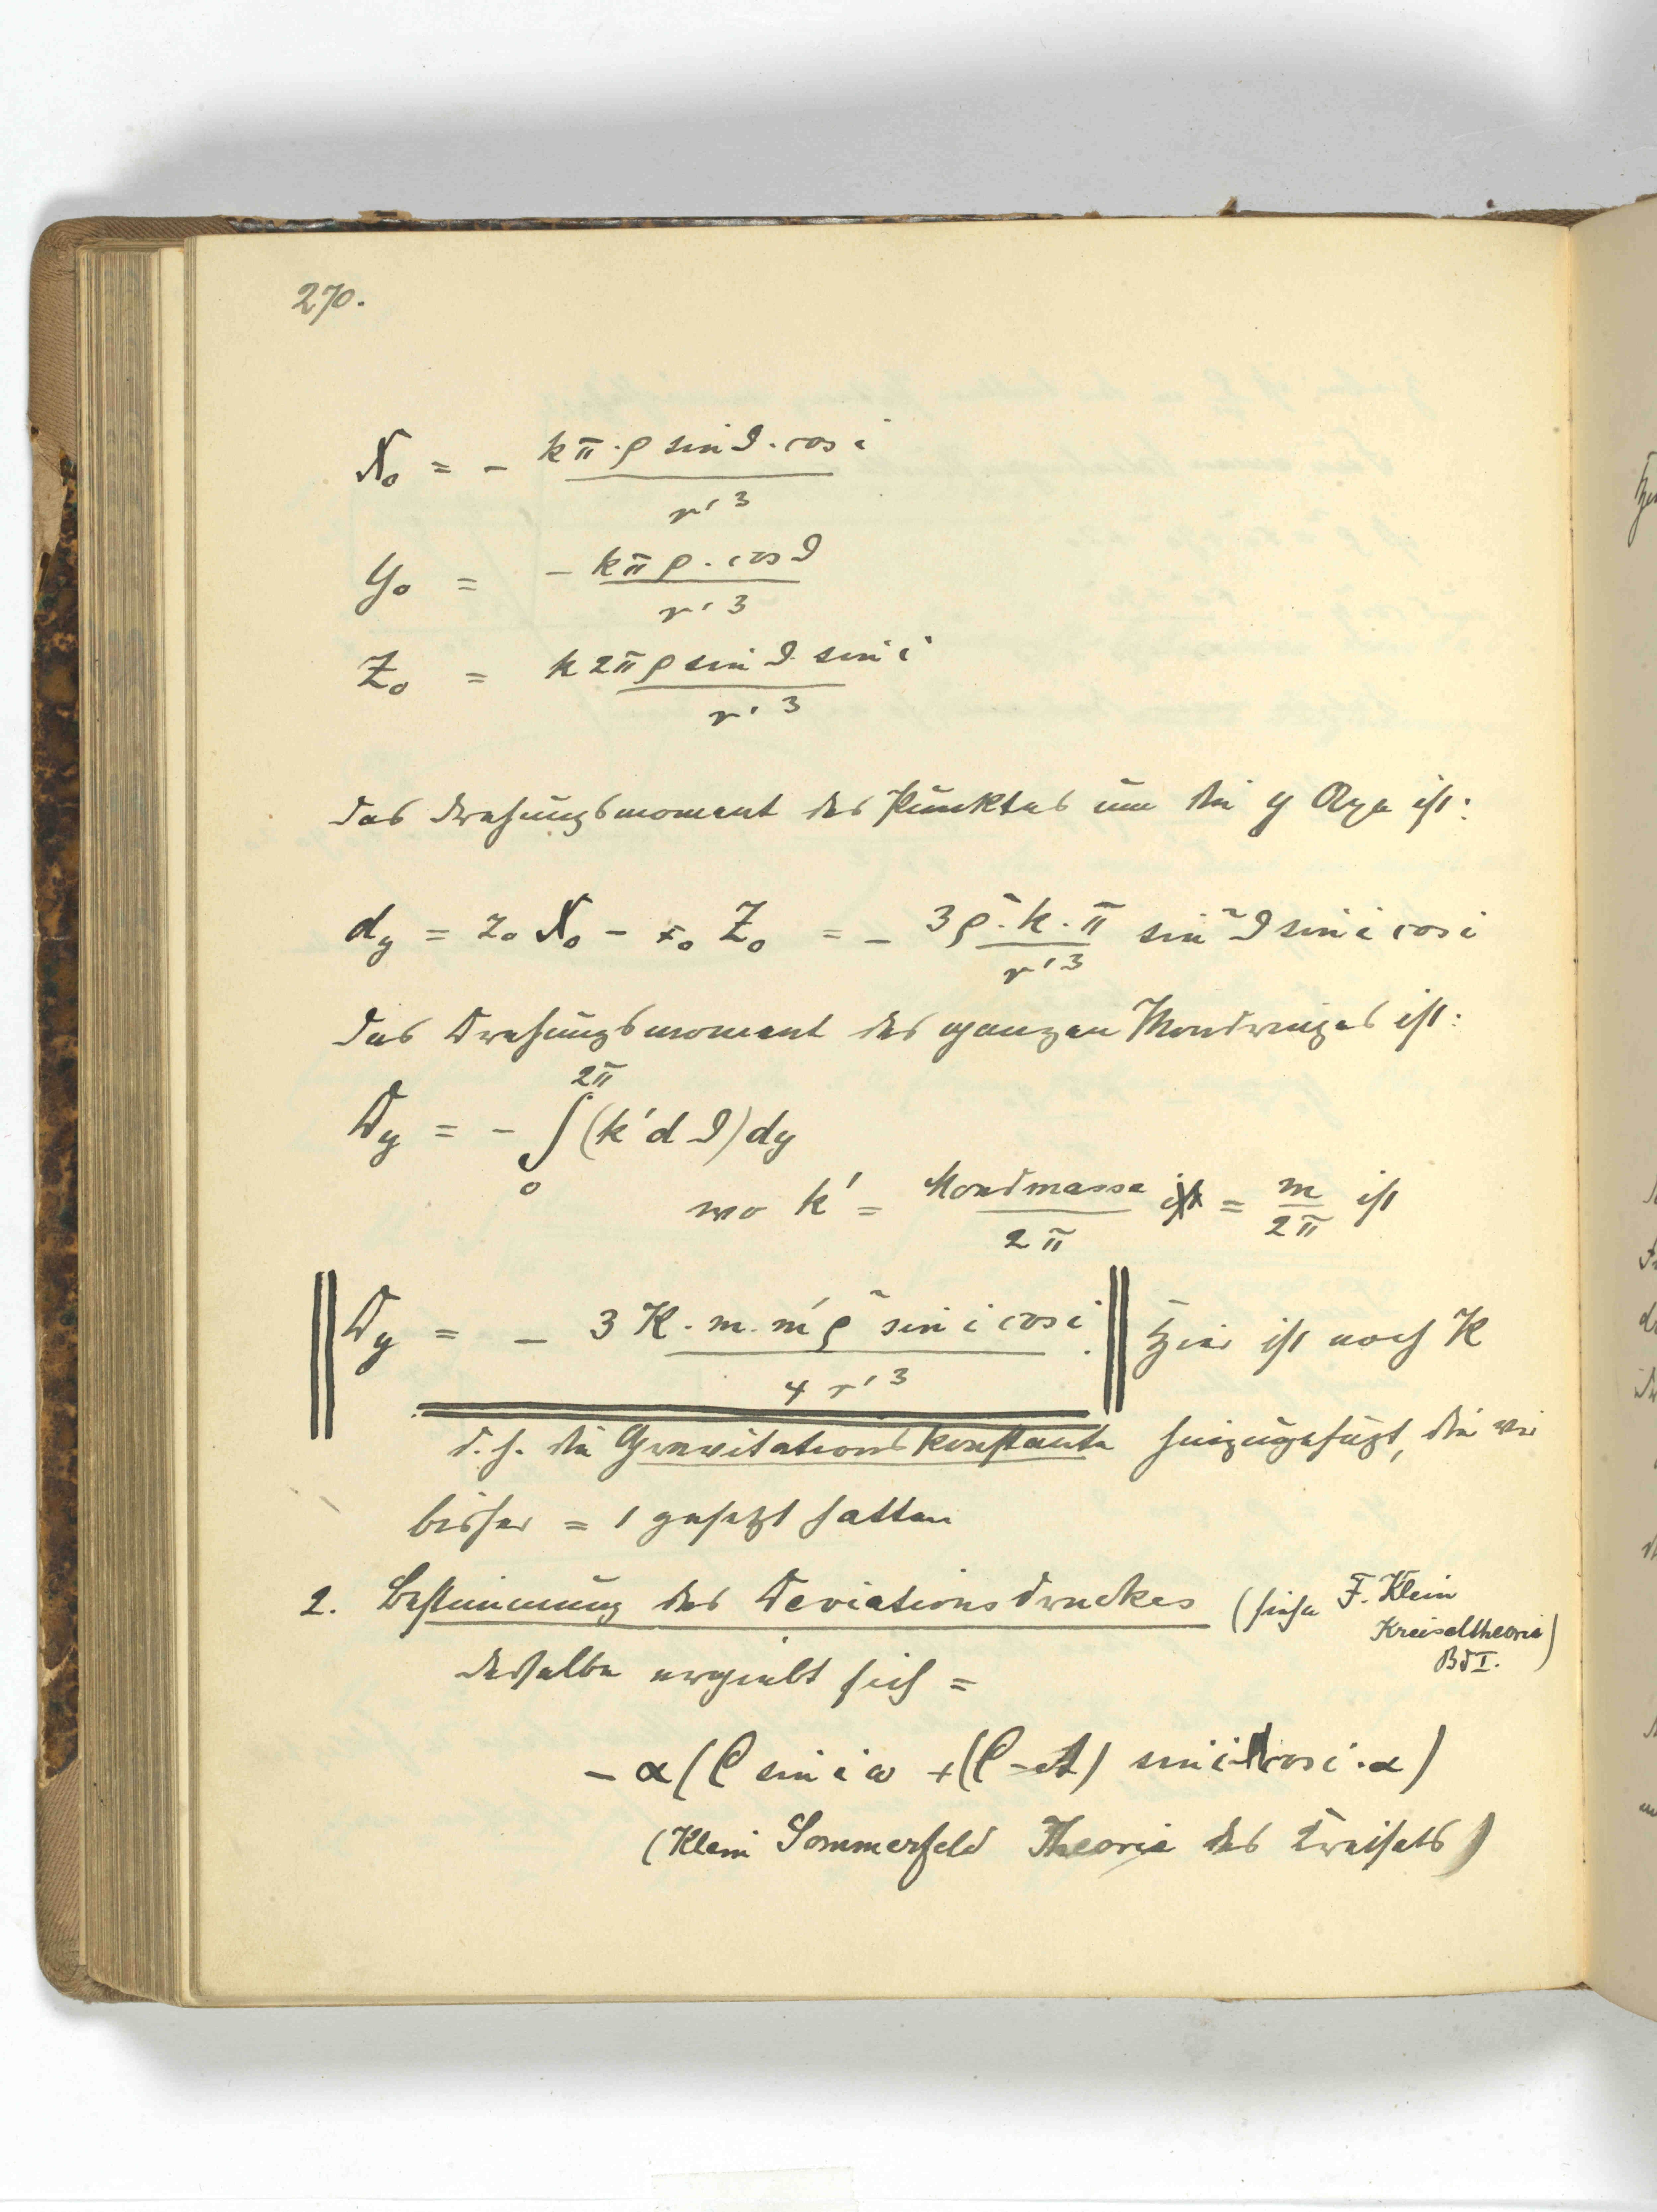 270.
X₀ = − kπ·ρ sin ϑ · cos i / r'³
Y₀ = − kπρ · cos ϑ / r'³
Z₀ = k 2πρ sin ϑ sin i / r'³
das Drehungsmoment des Punktes um die y Axe ist:
dy = z₀ X₀ − x₀ Z₀ = − 3ρ²·k·π / r'³ sin² ϑ sin i cos i
das Drehungsmoment des ganzen Mondringes ist:
Dy = − ∫₀^2π (k' d ϑ) dy
wo k' = Mondmasse / 2π = m / 2π ist
Dy = − 3 K · m · m' ρ² sin i cos i / 4 r'³ . Hier ist noch K
d. h. die Gravitationskonstante hinzugefügt, die wir
bisher = 1 gesetzt hatten
2. Bestimmung des Deviationsdruckes (siehe F. Klein
Kreiseltheorie)
Bd I.
derselbe ergiebt sich =
− α (C sin i ω + (C − A) sin i cos i · α)
(Klein Sommerfeld Theorie des Kreisels)